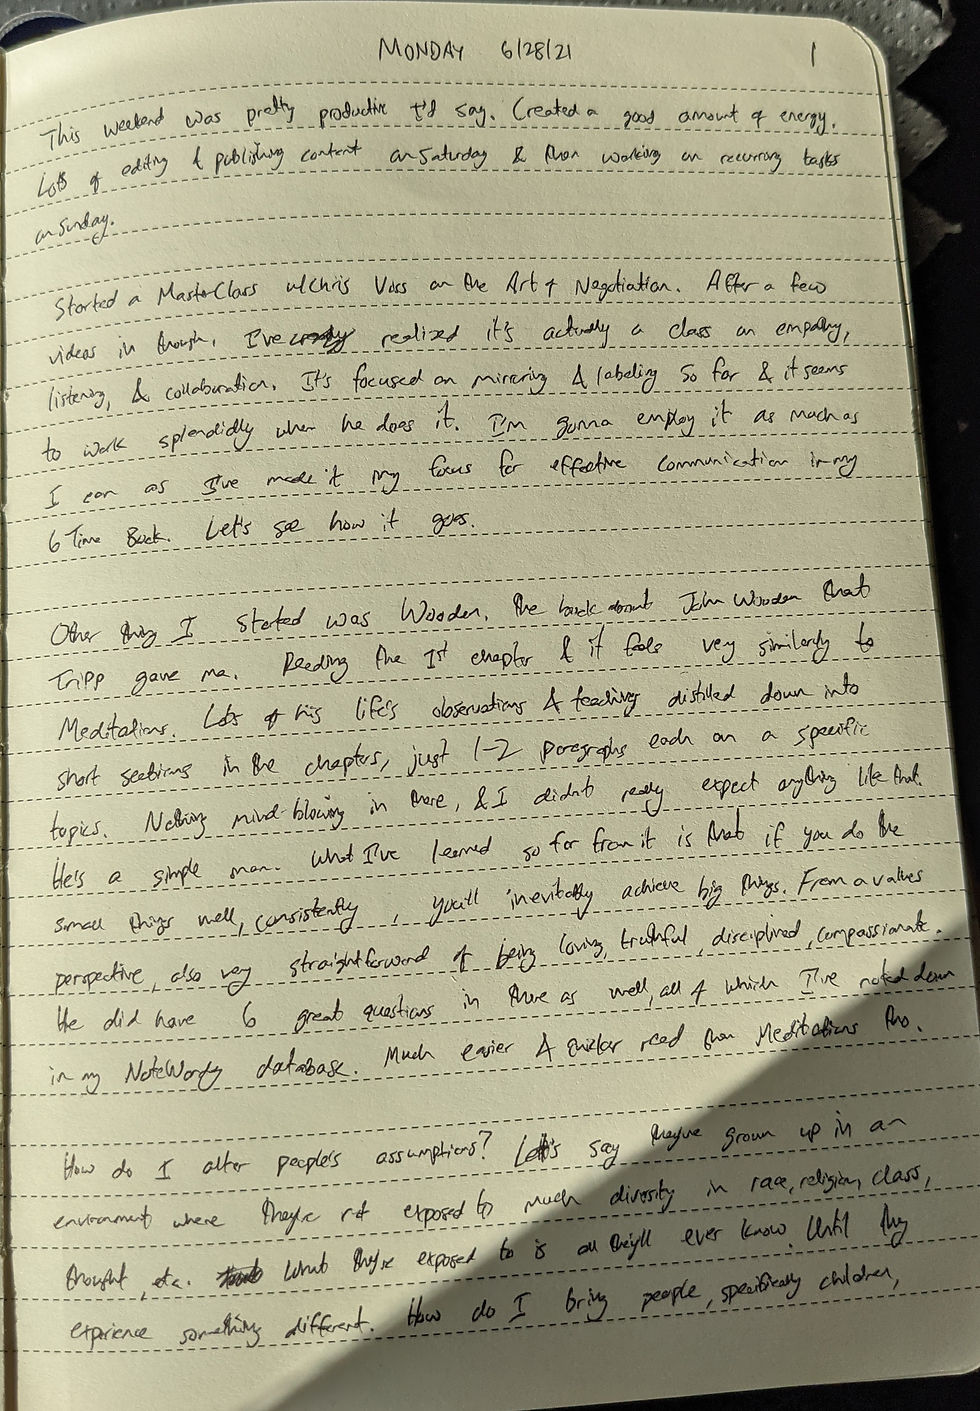 MONDAY 6/28/21 1
This weekend was pretty productive I'd say. Created a good amount of energy.
Lots of editing & publishing content on Saturday & then working on recurring tasks
on Sunday.
Started a MasterClass w/Chris Voss on the Art of Negotiation. After a few
videos in though, I've realized it's actually a class on empathy,
listening, & collaboration. It's focused on mirroring & labeling so far & it seems
to work splendidly when he does it. I'm gonna employ it as much as
I can as I've made it my focus for effective communication in my
6 Time Book. Let's see how it goes.
Other thing I started was Wooden, the book about John Wooden that
Tripp gave me. Reading the 1st chapter & it feels very similarly to
Meditations. Lots of his life's observations & teachings distilled down into
short sections in the chapters, just 1-2 paragraphs each on a specific
topics. Nothing mind-blowing in there, & I didn't really expect anything like that.
He's a simple man. What I've learned so far from it is that if you do the
small things well, consistently, you'll inevitably achieve big things. From a values
perspective, also very straightforward of being loving, truthful, disciplined, compassionate.
He did have 6 great questions in there as well, all of which I've noted down
in my NoteWordy database. Much easier & quicker read than Meditations tho.
How do I alter people's assumptions? Let's say they've grown up in an
environment where they're not exposed to much diversity in race, religion, class,
thought, etc. What they're exposed to is all they'll ever know. Until they
experience something different. How do I bring people, specifically children,